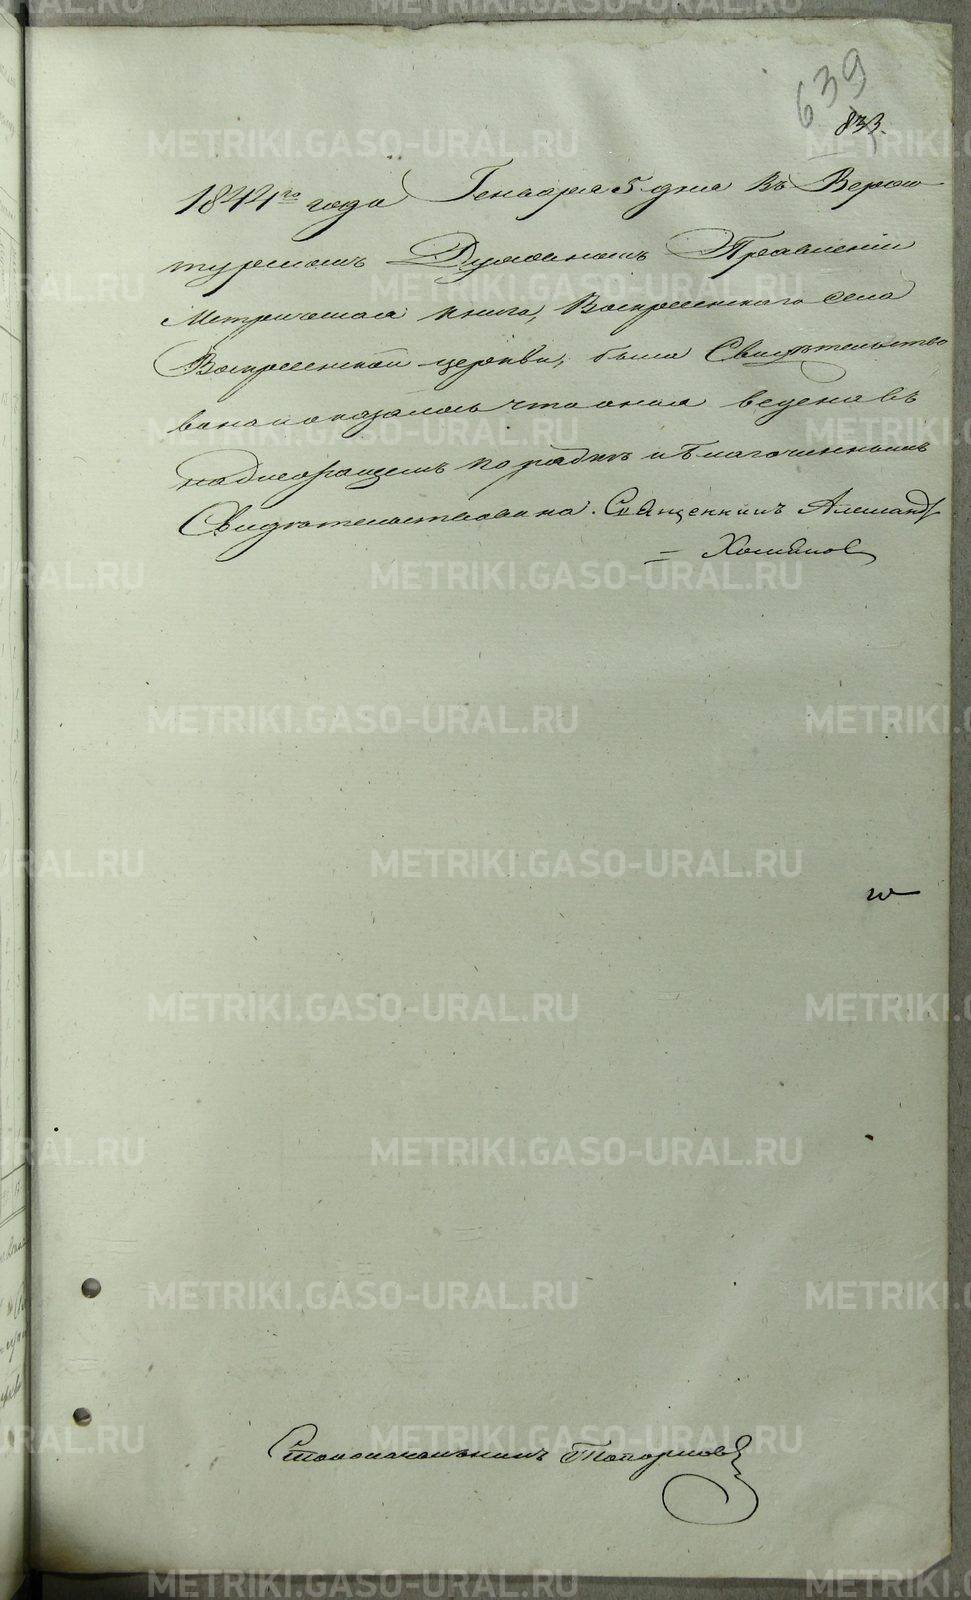 639
833.
1844го года Генваря 5 дня Въ Верхо
турскомъ Духовномъ Правленіи
Метрическая книга, Воскресенскаго села
Воскресенской церкви, была Свидѣтельство
вана и оказалось что оная ведена въ
надлежащемъ порядкѣ и Благочиннымъ
Свидѣтельствована. Священникъ Александръ
Хомяковъ
Столоначальникъ Топорковъ
METRIKI.GASO-URAL.RU